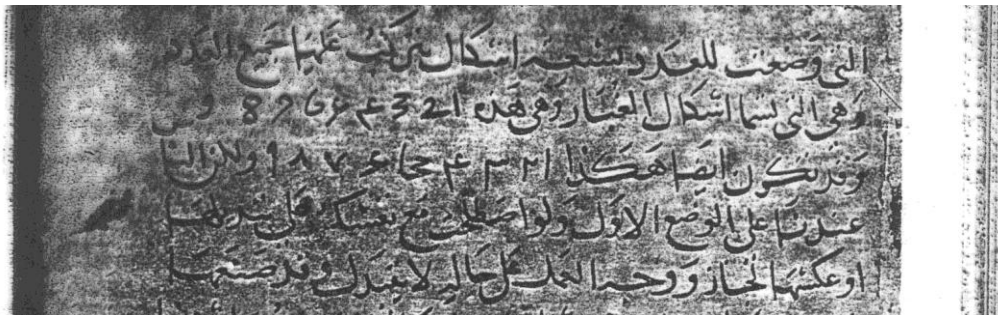 التي وضعت للعدد تسعة اشكال يتركب عليها جميع العدد
وهي التي تسما اشكال الغبار وهي هذه
وقد تكون ايضا هكذا ١ ٢ ٣ ٧ ٨ ٩ ولاكن الناس
عندنا على الوضع الاول ولو اصطلحت مع نفسك على تبديلها
او عكسها لجاز ووجه العمل على حاله لا يتبدل وقد صنعها